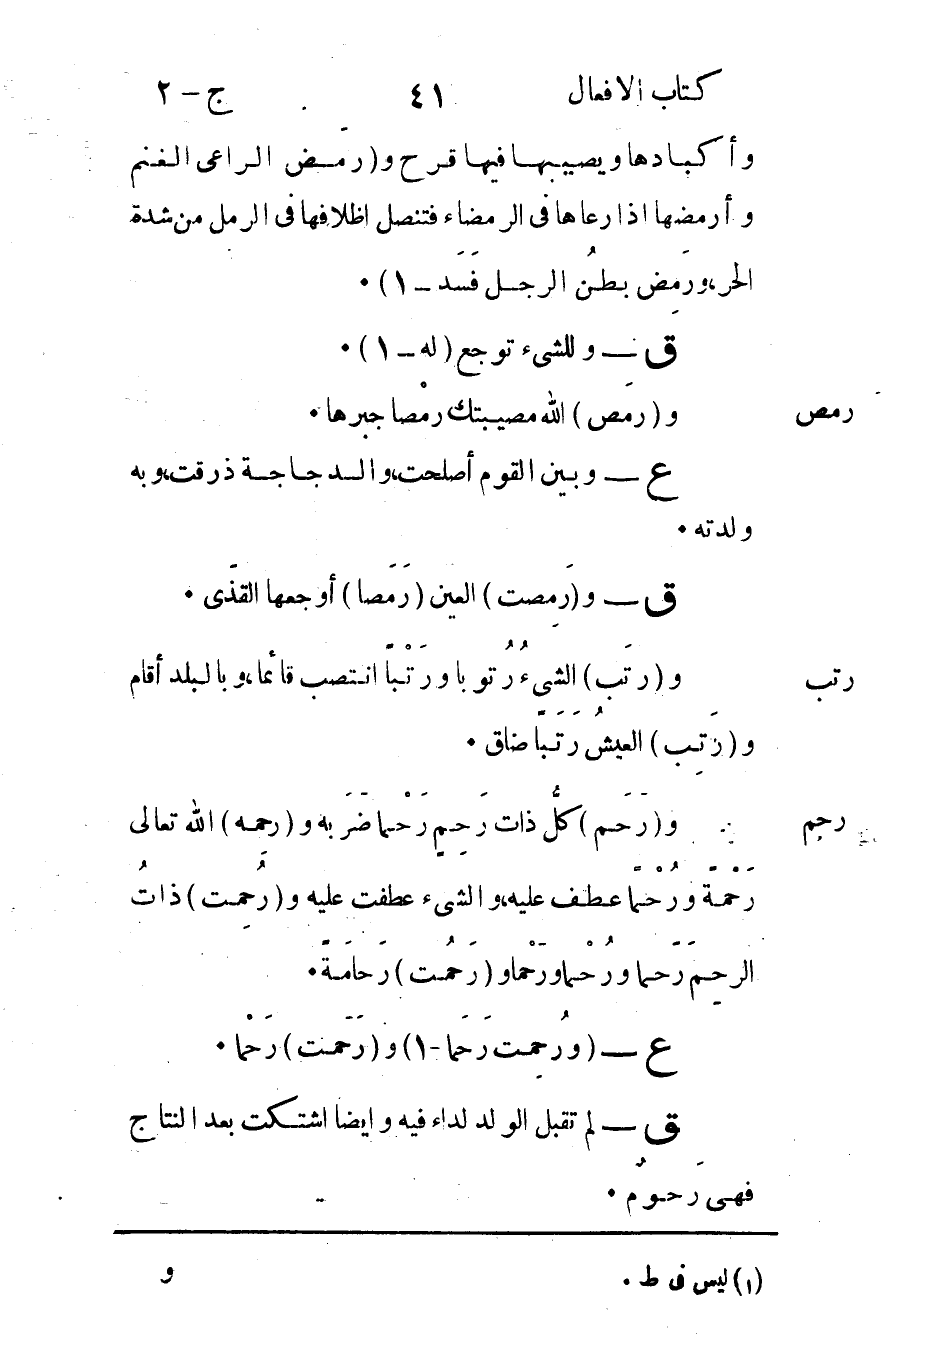 كتاب الافعال ٤١ ج - ٢
وأكبادها ويصيبها فيها قرح و(رمض الراعى الغنم
وأرمضها اذا رعاها فى الرمضاء فتنصل اظلافها فى الرمل من شدة
الحر،ورَمِض بطنُ الرجل فَسَد - ١) •
ق — وللشىء توجع (له - ١) •
رمص و(رمَص) الله مصيبتك رمْصا جبرها •
ع — وبين القوم أصلحت،والدجاجة ذرقت،وبه
ولدته •
ق — و(رَمِصت) العين (رَمَصا) أوجعها القذَى •
رتب و(رتَب) الشىءُ رُتوبا ورَتْبًا انتصب قائما،وبالبلد أقام
و(رَتِب) العيشُ رَتَبًا ضاق •
رحم و(رَحَم) كلُّ ذات رَحِمٍ رَحْما ضَرَبه و(رحِمه) الله تعالى
رَحْمَةً ورُحْمًا عطف عليه،والشىء عطفت عليه و(رُحِمت) ذاتُ
الرحِمِ رَحَمًا ورُحْما ورَحْما و(رَحُمت) رَحامَةً •
ع — (ورُحِمت رَحَما - ١) و(رَحَمَت) رَحْما •
ق — لم تقبل الولد لداء فيه وايضا اشتكت بعد النتاج
فهى رَحومٌ •
(١) ليس فى ط •
و